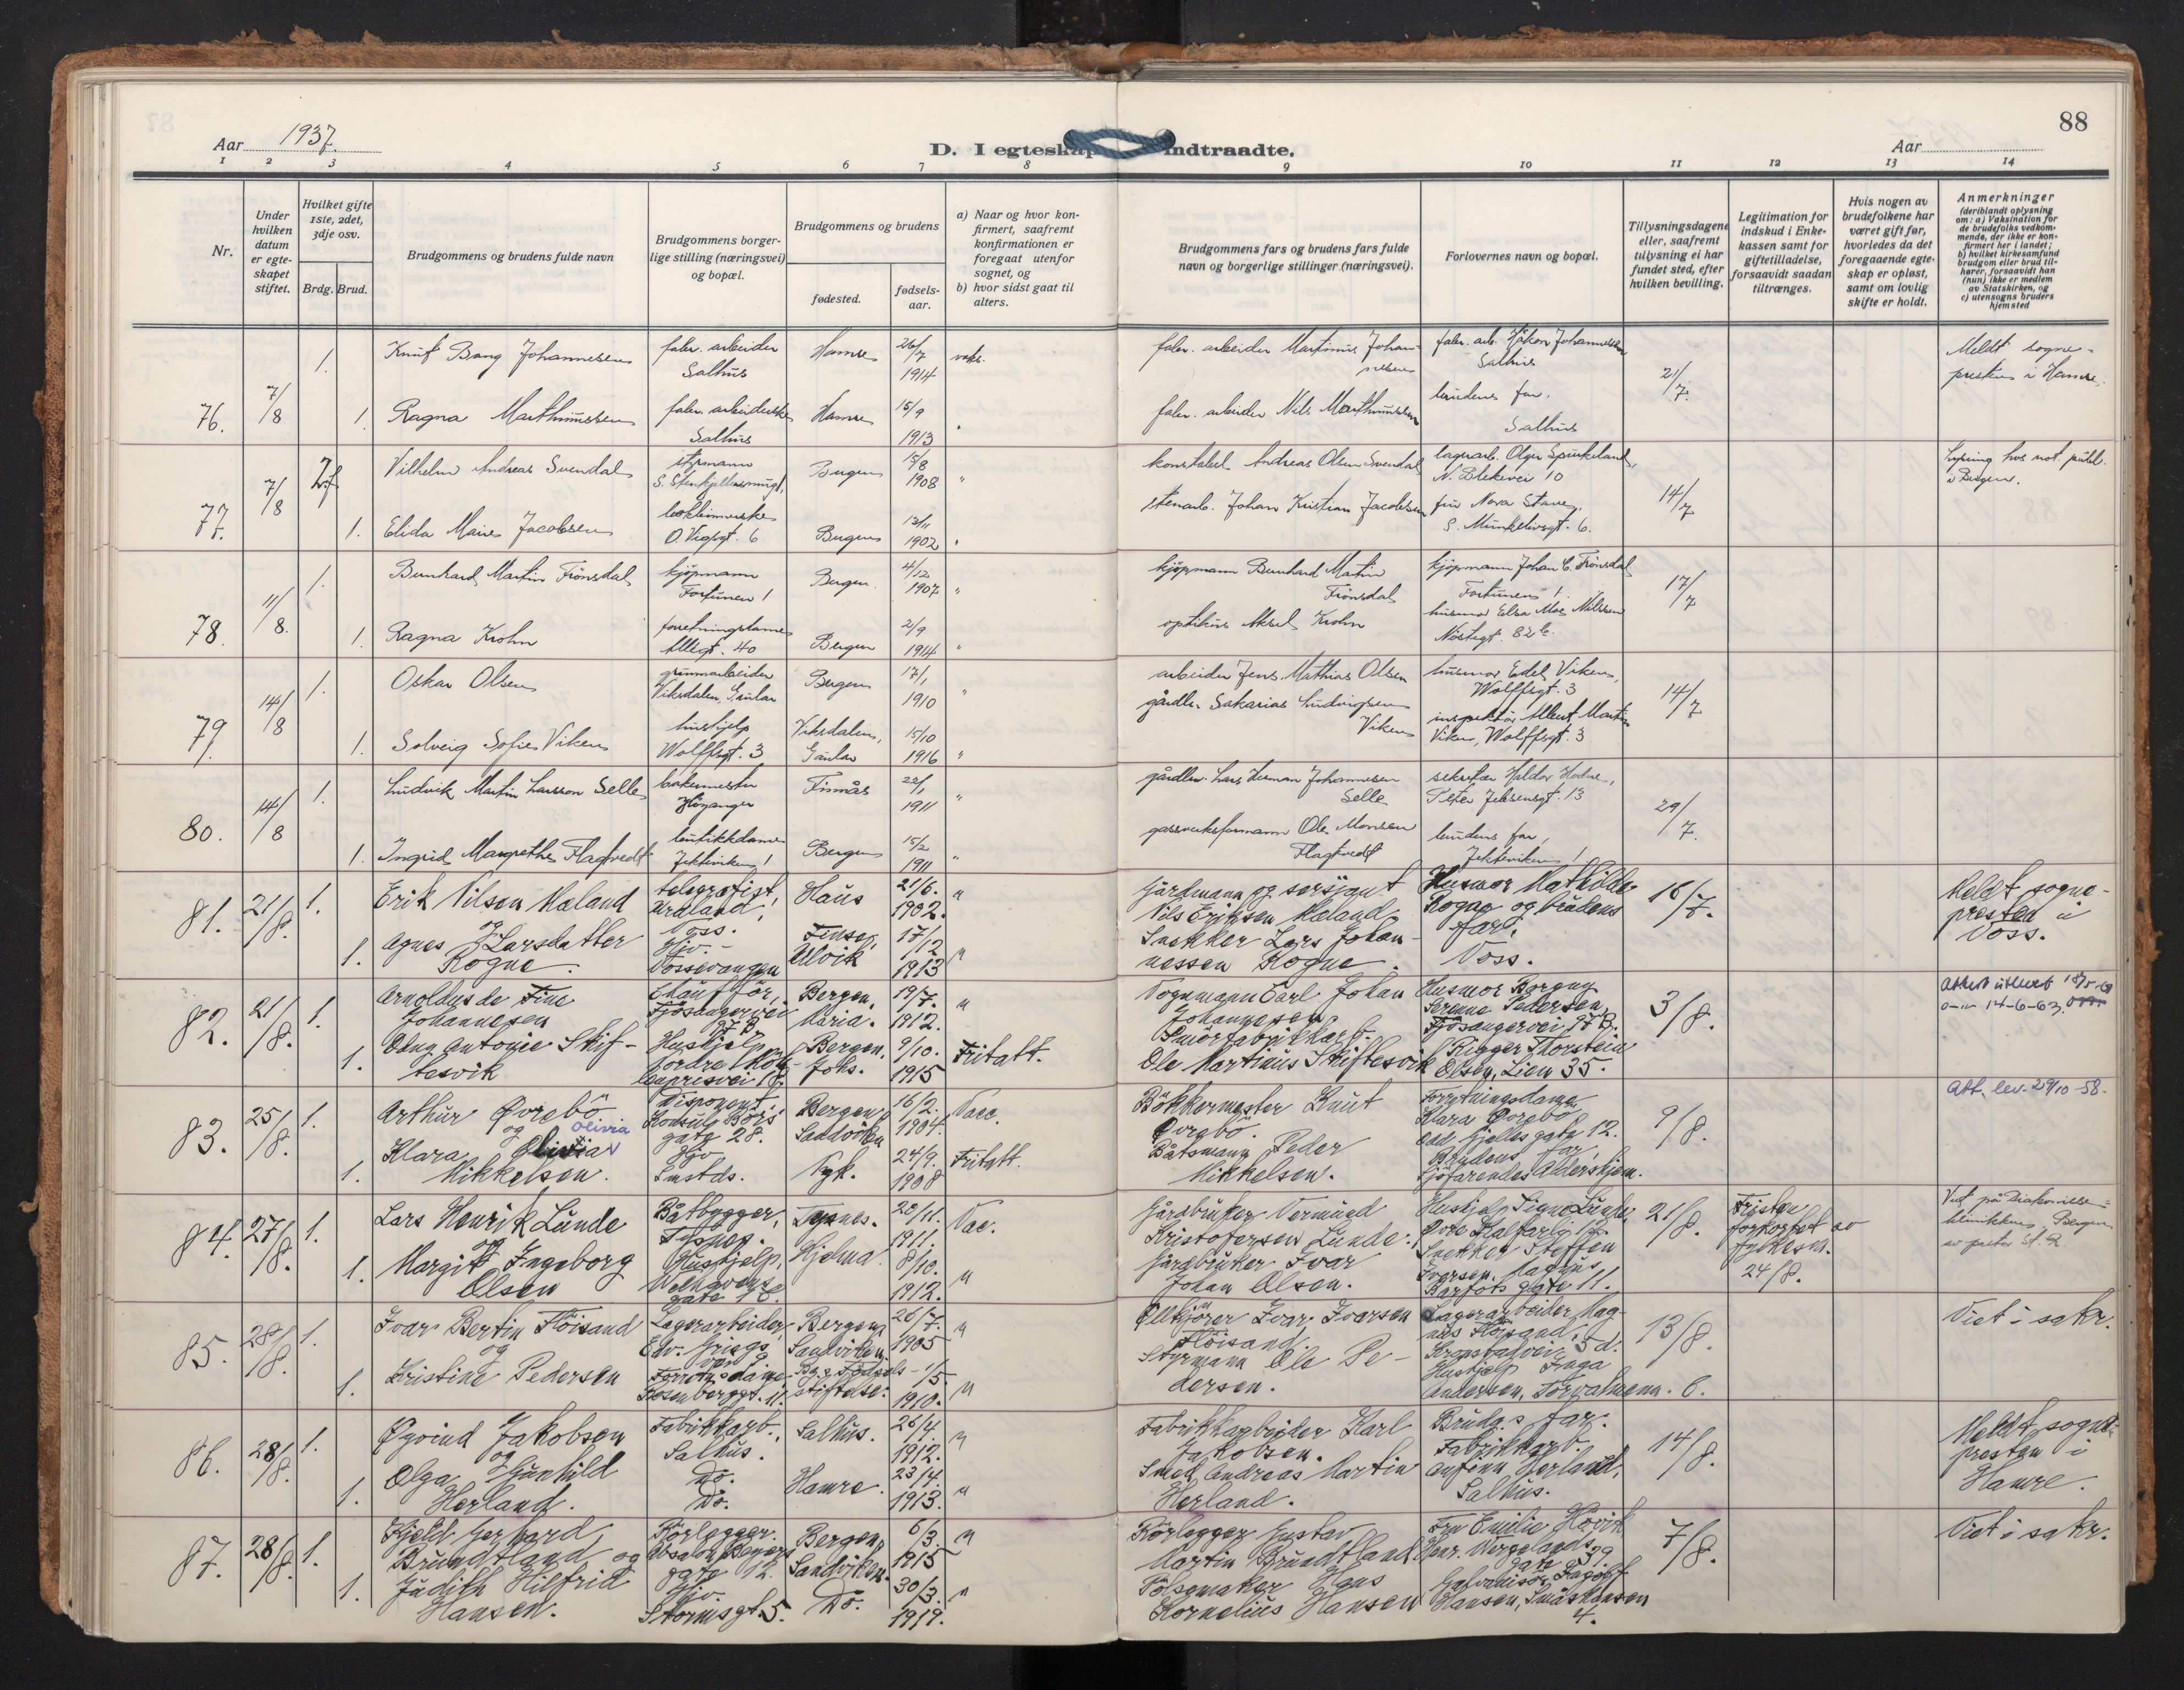 88
Aar 1937.
D. I egteskap indtraadte.
Aar
1 2 3 4 5 6 7 8 9 10 11 12 13 14
Nr.
Under hvilken datum er egteskapet stiftet.
Hvilket gifte 1ste, 2det, 3dje osv.
Brdg. Brud.
Brudgommens og brudens fulde navn
Brudgommens borgerlige stilling (næringsvei) og bopæl.
Brudgommens og brudens
fødested.
fødselsaar.
a) Naar og hvor konfirmert, saafremt konfirmationen er foregaat utenfor sognet, og
b) hvor sidst gaat til alters.
Brudgommens fars og brudens fars fulde navn og borgerlige stillinger (næringsvei).
Forlovernes navn og bopæl.
Tillysningsdagene eller, saafremt tillysning ei har fundet sted, efter hvilken bevilling.
Legitimation for indskud i Enkekassen samt for giftetilladelse, forsaavidt saadan tiltrænges.
Hvis nogen av brudefolkene har været gift før, hvorledes da det foregaaende egteskap er opløst, samt om lovlig skifte er holdt.
Anmerkninger
(deriblandt oplysning om: a) Vaksination for de brudefolks vedkommende, der ikke er konfirmert her i landet; b) hvilket kirkesamfund brudgom eller brud tilhører, forsaavidt han (hun) ikke er medlem av Statskirken, og c) utensogns bruders hjemsted
76. 7/8 1. Knut Bang Johannesen fabr. arbeider Salhus Hamre 26/7 1914 vaks.
fabr. arbeider Martinus Johannesen fabr. arb. Håkon Johannessen Salhus 21/7. Meldt sognepresten i Hamre.
1. Ragna Marthinussen fabr. arbeiderske Salhus Hamre 15/9 1913 "
fabr. arbeider Nils Marthinussen brudens far, Salhus
77. 7/8 2. Vilhelm Andreas Svendal styrmann Bergen 15/8 1908 "
konstabel Andreas Olsen Svendal lagerarb. N. Blekevei 10 14/7
1. Elida Marie Jacobsen O. Vegsgt. 6 Bergen 12/11 1902 "
stenarb. Johan Kristian Jacobsen fru Nora Stave, S. Munkelivsgt. 6.
78. 11/8. 1. Bernhard Martin Trönsdal kjöpmann Fortunen 1 Bergen 4/12 1907 "
kjöpmann Bernhard Martin Trönsdal kjöpmann Johan C. Trönsdal Fortunen 1. 17/7
1. Ragna Krohn forretningsdame Allégt. 40 Bergen 2/9 1914 "
optikus Aksel Krohn husmor Elsa Moe Nilssen Nöstegt. 82 b.
79. 14/8 1. Oskar Olsen grunnarbeider Viksdalen, Gaular Bergen 17/1 1910 "
arbeider Jens Mathias Olsen husmor Edel Viken, Wolffsgt. 3 14/7
1. Solveig Sofie Viken hushjelp Wolffsgt. 3 Viksdalen, Gaular 15/10 1916 "
gårdbr. Sakarias Ludvigsen Viken inspektör Albert Martin Viken, Wolffsgt. 3
80. 14/8 1. Ludvik Martin Larsson Selle bakermester Höyanger Finnås 22/1 1911 "
gårdbr. Lars Herman Johannesen Selle sekretær Peter Jebsensgt. 13 29/7.
1. Ingrid Margrethe Flagtvedt butikkdame Jekteviken 1 Bergen 15/2 1911 "
gassverksformann Ole Monsen Flagtvedt brudens far, Jekteviken 1
81. 21/8. 1. Erik Nilsen Mæland telegrafist, Voss. Haus 21/6. 1902. "
Gårdmann og sersjant Nils Eriksen Mæland Husmor Mathilde Rogne og brudens far, Voss. 16/7. Meldt sognepresten i Voss.
1. Agnes Larsdatter Rogne. Hjv. Vossevangen Finse, Ulvik 17/12 1913 "
Snekker Lars Johannessen Rogne.
82. 21/8. 1. Arnoldus de Fine Johannesen Chaufför, Fjösangervei 97 B Bergen, Maria. 19/7. 1912. "
Vognmann Carl Johan Johannesen Husmor Borgny Serenne Pedersen, Fjösangervei 97 B. 3/8.
14-6-63.
1. Antonie Skiftesvik Hushjelp Bergen, Johs. 9/10. 1915 Fritatt.
Ole Martinus Skiftesvik Rigger Thorstein Olsen, Lien 35.
83. 25/8. 1. Arthur Øvrebö og Disponent, Konsul Börs gate 28. Bergen, Sandviken 16/2. 1904. Vacc.
Bökkermester Knut Øvrebö. Forretningsdame Klara Øvrebö Odd Gjelles gate 12. 9/8. Att. lev. 29/10-58.
1. Klara Olivia Mikkelsen. Hjv. Smstds. Nyk. 24/9. 1908 Fritatt.
Olivia
Båtsmann Peder Mikkelsen. Brudens far, Sjöfarendes Aldershjem.
84. 27/8. 1. Lars Henrik Lunde og Båtbygger, Tysnes. Tysnes. 20/11. 1911. Vac.
Gårdbruker Vermund Kristofersen Lunde. Hushjelp Signe Lunde, Øvre Kalfarli 12. 21/8. Fristen forkortet av fylkesm. 24/8.
Viet på Diakonisseklinikken, Bergen
1. Margit Ingeborg Olsen Hushjelp, Welhavens gate Hjelma 8/10. 1912. "
Gårdbruker Ivar Johan Olsen. Snekker Steffen Ivarsen, Magnus Barfots gate 11.
85. 28/8. 1. Ivar Bertin Flöisand og Lagerarbeider, Edv. Griegs vei 9 Bergen, Sandviken 26/7. 1905 "
Ølkjörer Ivar Ivarsen Flöisand. Lagerarbeider Magnus Flöisand, 5 d. 13/8. Viet i sakr.
1. Kristine Pedersen Forretn.dame Rosenberggt. 11. Berg. Fødselsstiftelse. 1/5. 1910. "
Styrmann Ole Pedersen. Hushjelp Inga Andersen, Torvalmenn. 6.
86. 28/8. 1. Øyvind Jakobsen og Fabrikkarb., Salhus. Salhus. 26/4. 1912. "
Fabrikkarbeider Karl Jakobsen. Brudg.s far. 14/8. Meldt sognepresten i Hamre.
1. Olga Gunhild Herland. Do. Do. Hamre. 23/4. 1913. "
Smed Andreas Martin Herland. Fabrikkarb. Anfinn Herland, Salhus.
87. 28/8. 1. Kjeld Gerhard Brundtland og Rörlegger. Absalon Beyers gate 12. Bergen, Sandviken. 6/3. 1915 "
Rörlegger Gustav Martin Brundtland Fru Emilie Hövik Henr. Wergelands gate 39. 7/8. Viet i sakr.
1. Judith Hilfrid Hansen. Hjv. Stormsgt. 5. Do. 30/3. 1919. "
Pölsemaker Hans Kornelius Hansen Galvanisör Hansen, Småskansen 4.